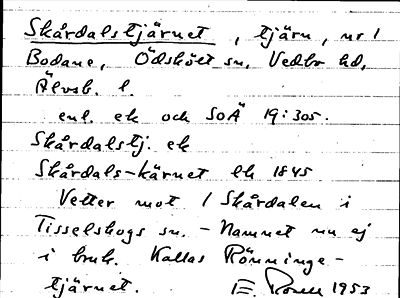 Skårdalstjärnet, tjärn, nr 1
Bodane, Ödskölt sn, Vedbo hd,
Älvsb. l.
enl. ek och SOÄ 19:305.
Skårdalstj. ek
Skårdals-kärnet lk 1845
Vetter mot / Skårdalen i
Tisselskogs sn. - Namnet nu ej
i bruk. Kallas Rönninge-
tjärnet. 1953